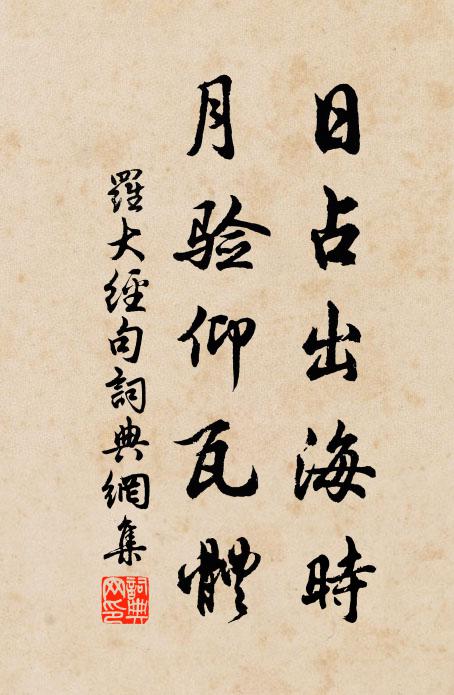 日占出海時
月验仰瓦體
羅大經句詞典網集
詞典網印